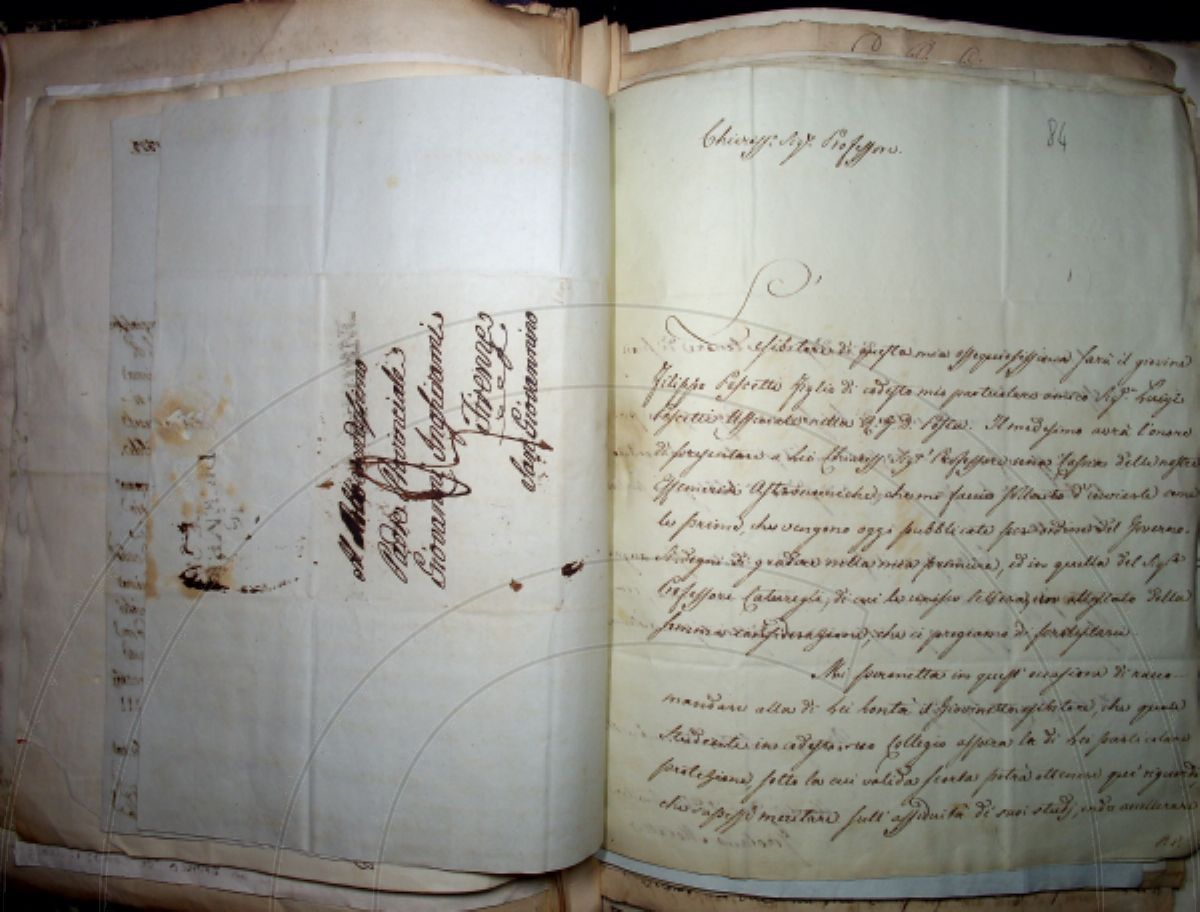 Al Molto Reverendissimo
Padre Provinciale
Giovanni Inghirami
Firenze
San Giovannino
84
Chiaress.º Sig.r Professore.
L'
Esibitore di questa mia ossequiosissima sarà il giovine
Filippo Pescetti figlio di codesto mio particolare amico Sig.r Luigi
Pescetti Uffiziale nella Posta. Il medesimo avrà l'onore
di presentare a Lei Chiaress.º Sig.r Professore una Copia delle nostre
Effemeridi Astronomiche, che mi faccio sollecito d'inviarle come
le prime, che vengono oggi pubblicate per ordine del Governo.
Si degni di gradire nella mia premura, ed in quella del Sig.r
Professore Caturegli, di cui le unisco lettera, un attestato della
somma considerazione, che ci pregiamo di protestarle.
Mi permetta in quest'occasione di racco-
mandare alla di Lei bontà il Giovine esibitore, che quale
Studente in codesto suo Collegio aspira la di Lei particolare
protezione, sotto la cui valida scorta potrà ottenere quei riguardi
che sapesse meritare sull'assiduità di suoi studj, onde accelerare